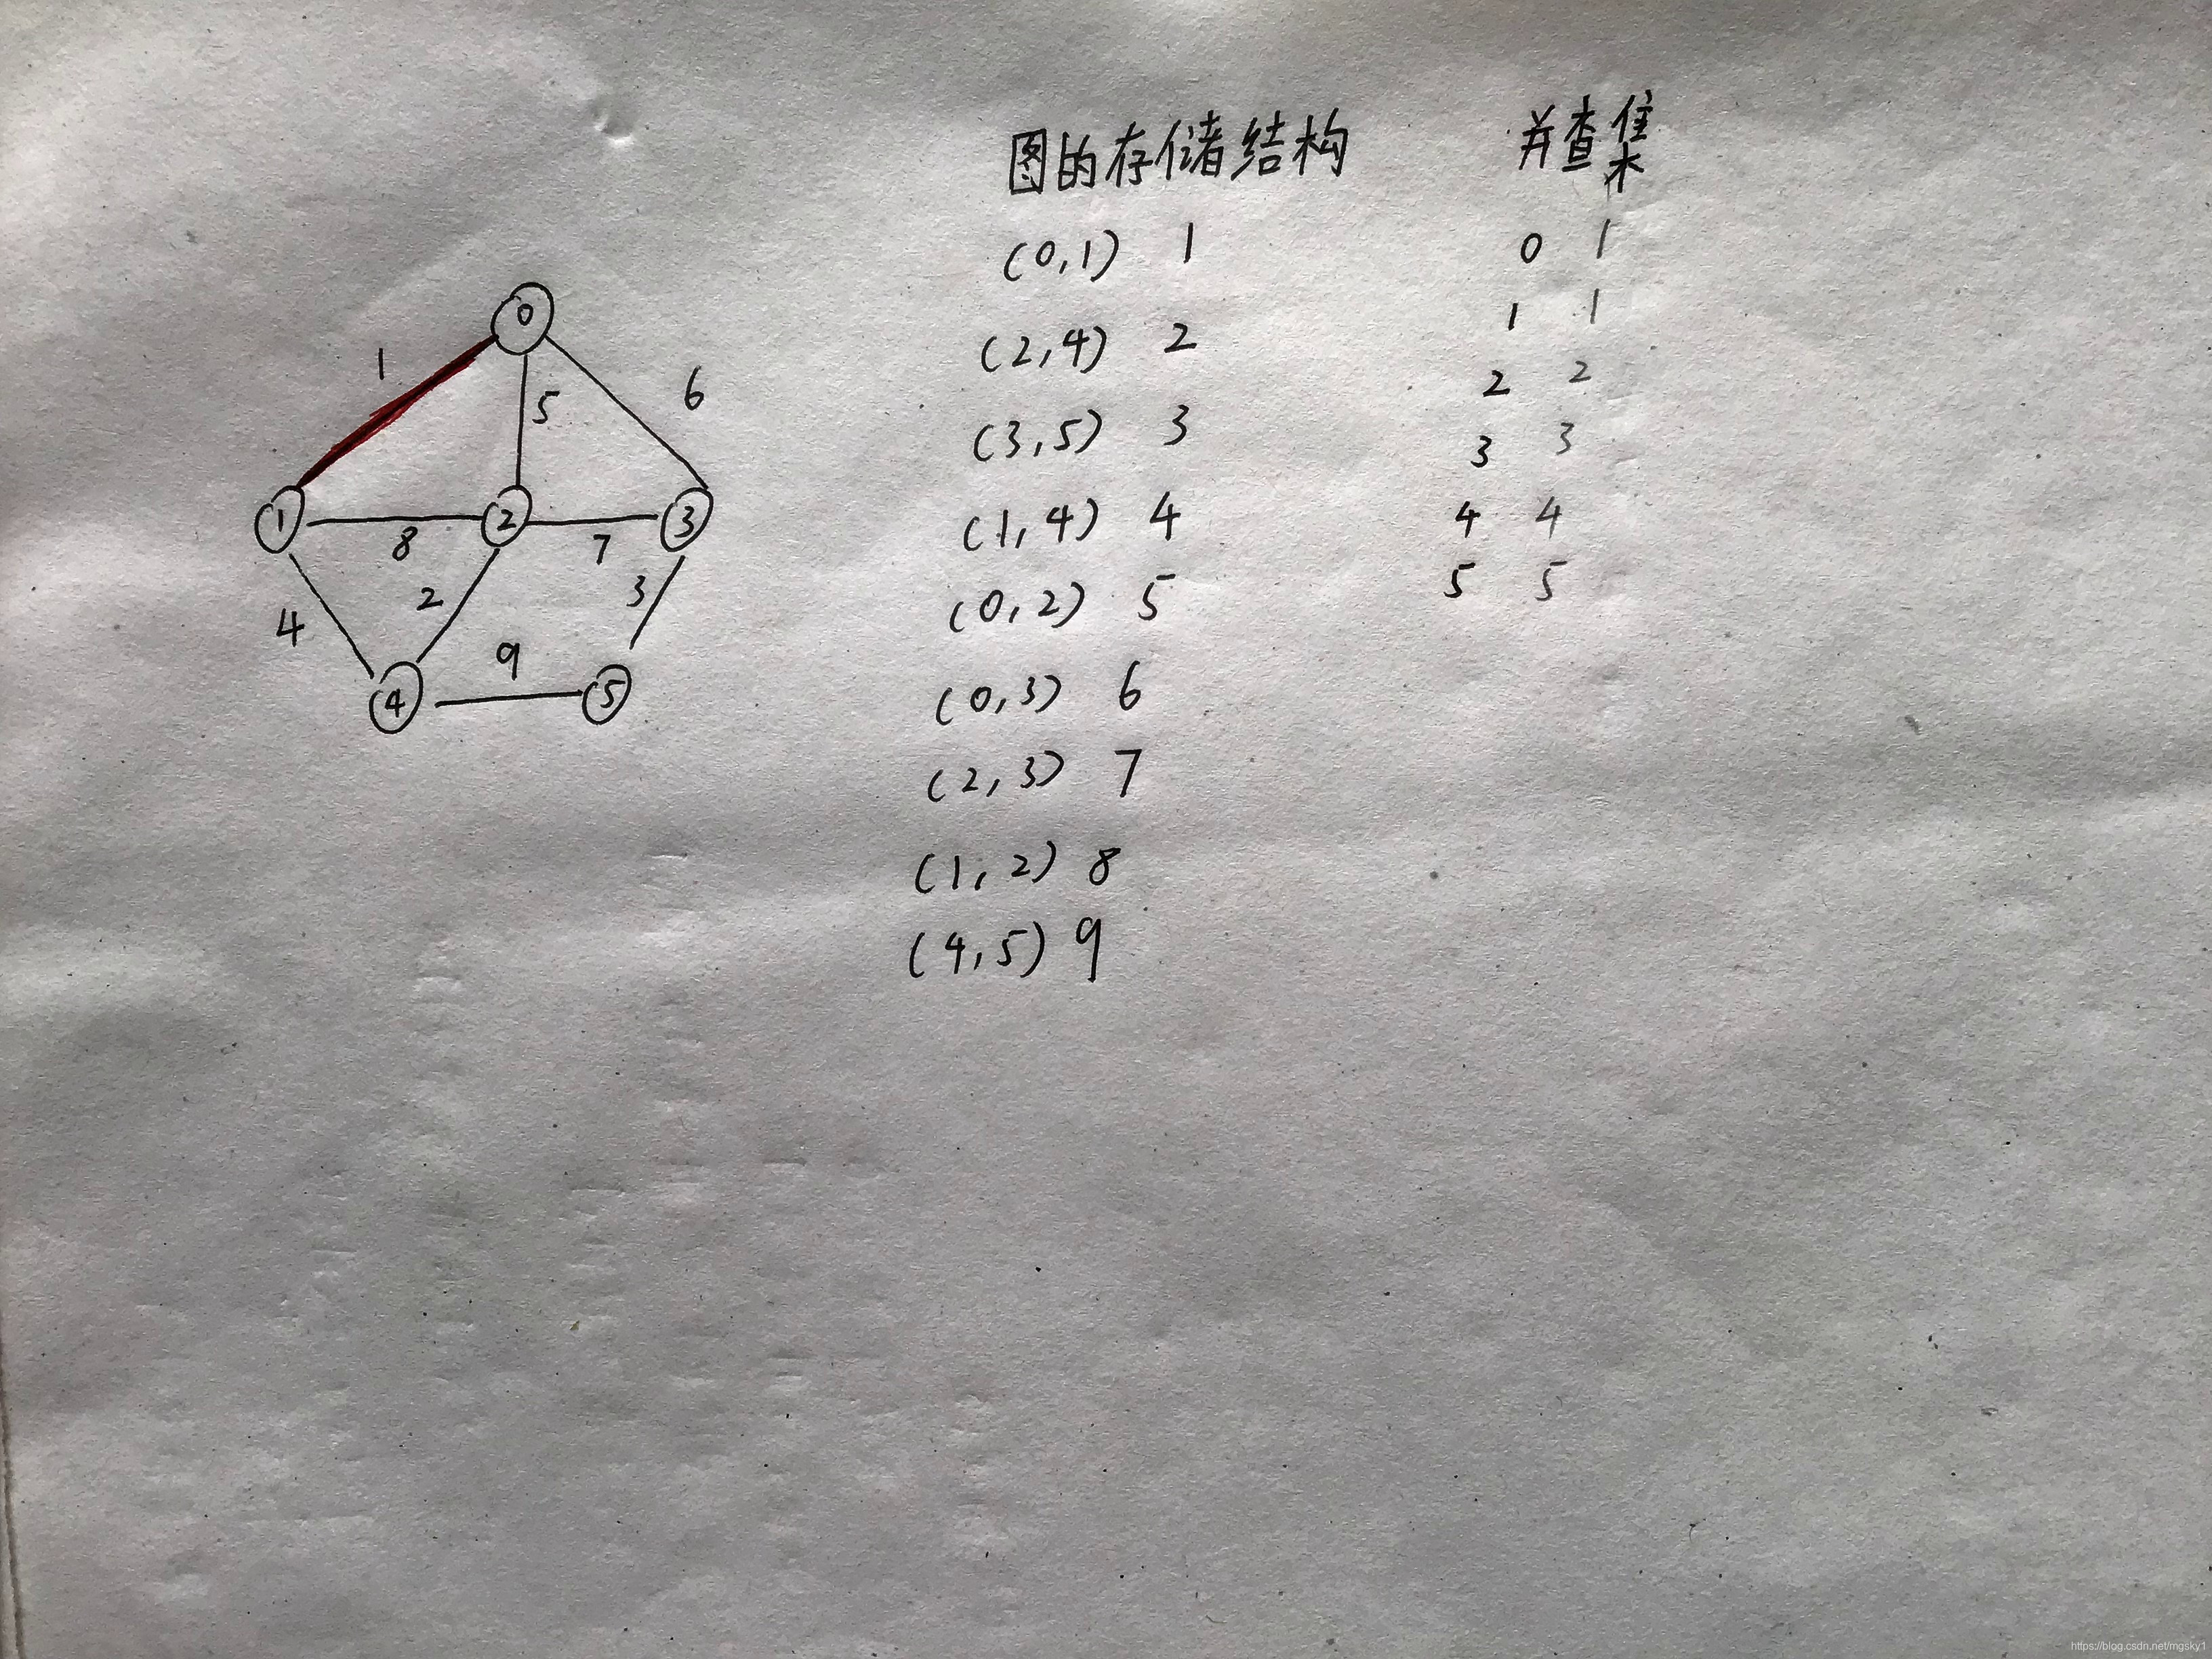 图的存储结构
(0,1) 1
(2,4) 2
(3,5) 3
(1,4) 4
(0,2) 5
(0,3) 6
(2,3) 7
(1,2) 8
(4,5) 9
并查集
0 1
1 1
2 2
3 3
4 4
5 5
0
1
5
6
1
2
3
8
7
4
2
3
9
4
5
https://blog.csdn.net/mgsky1